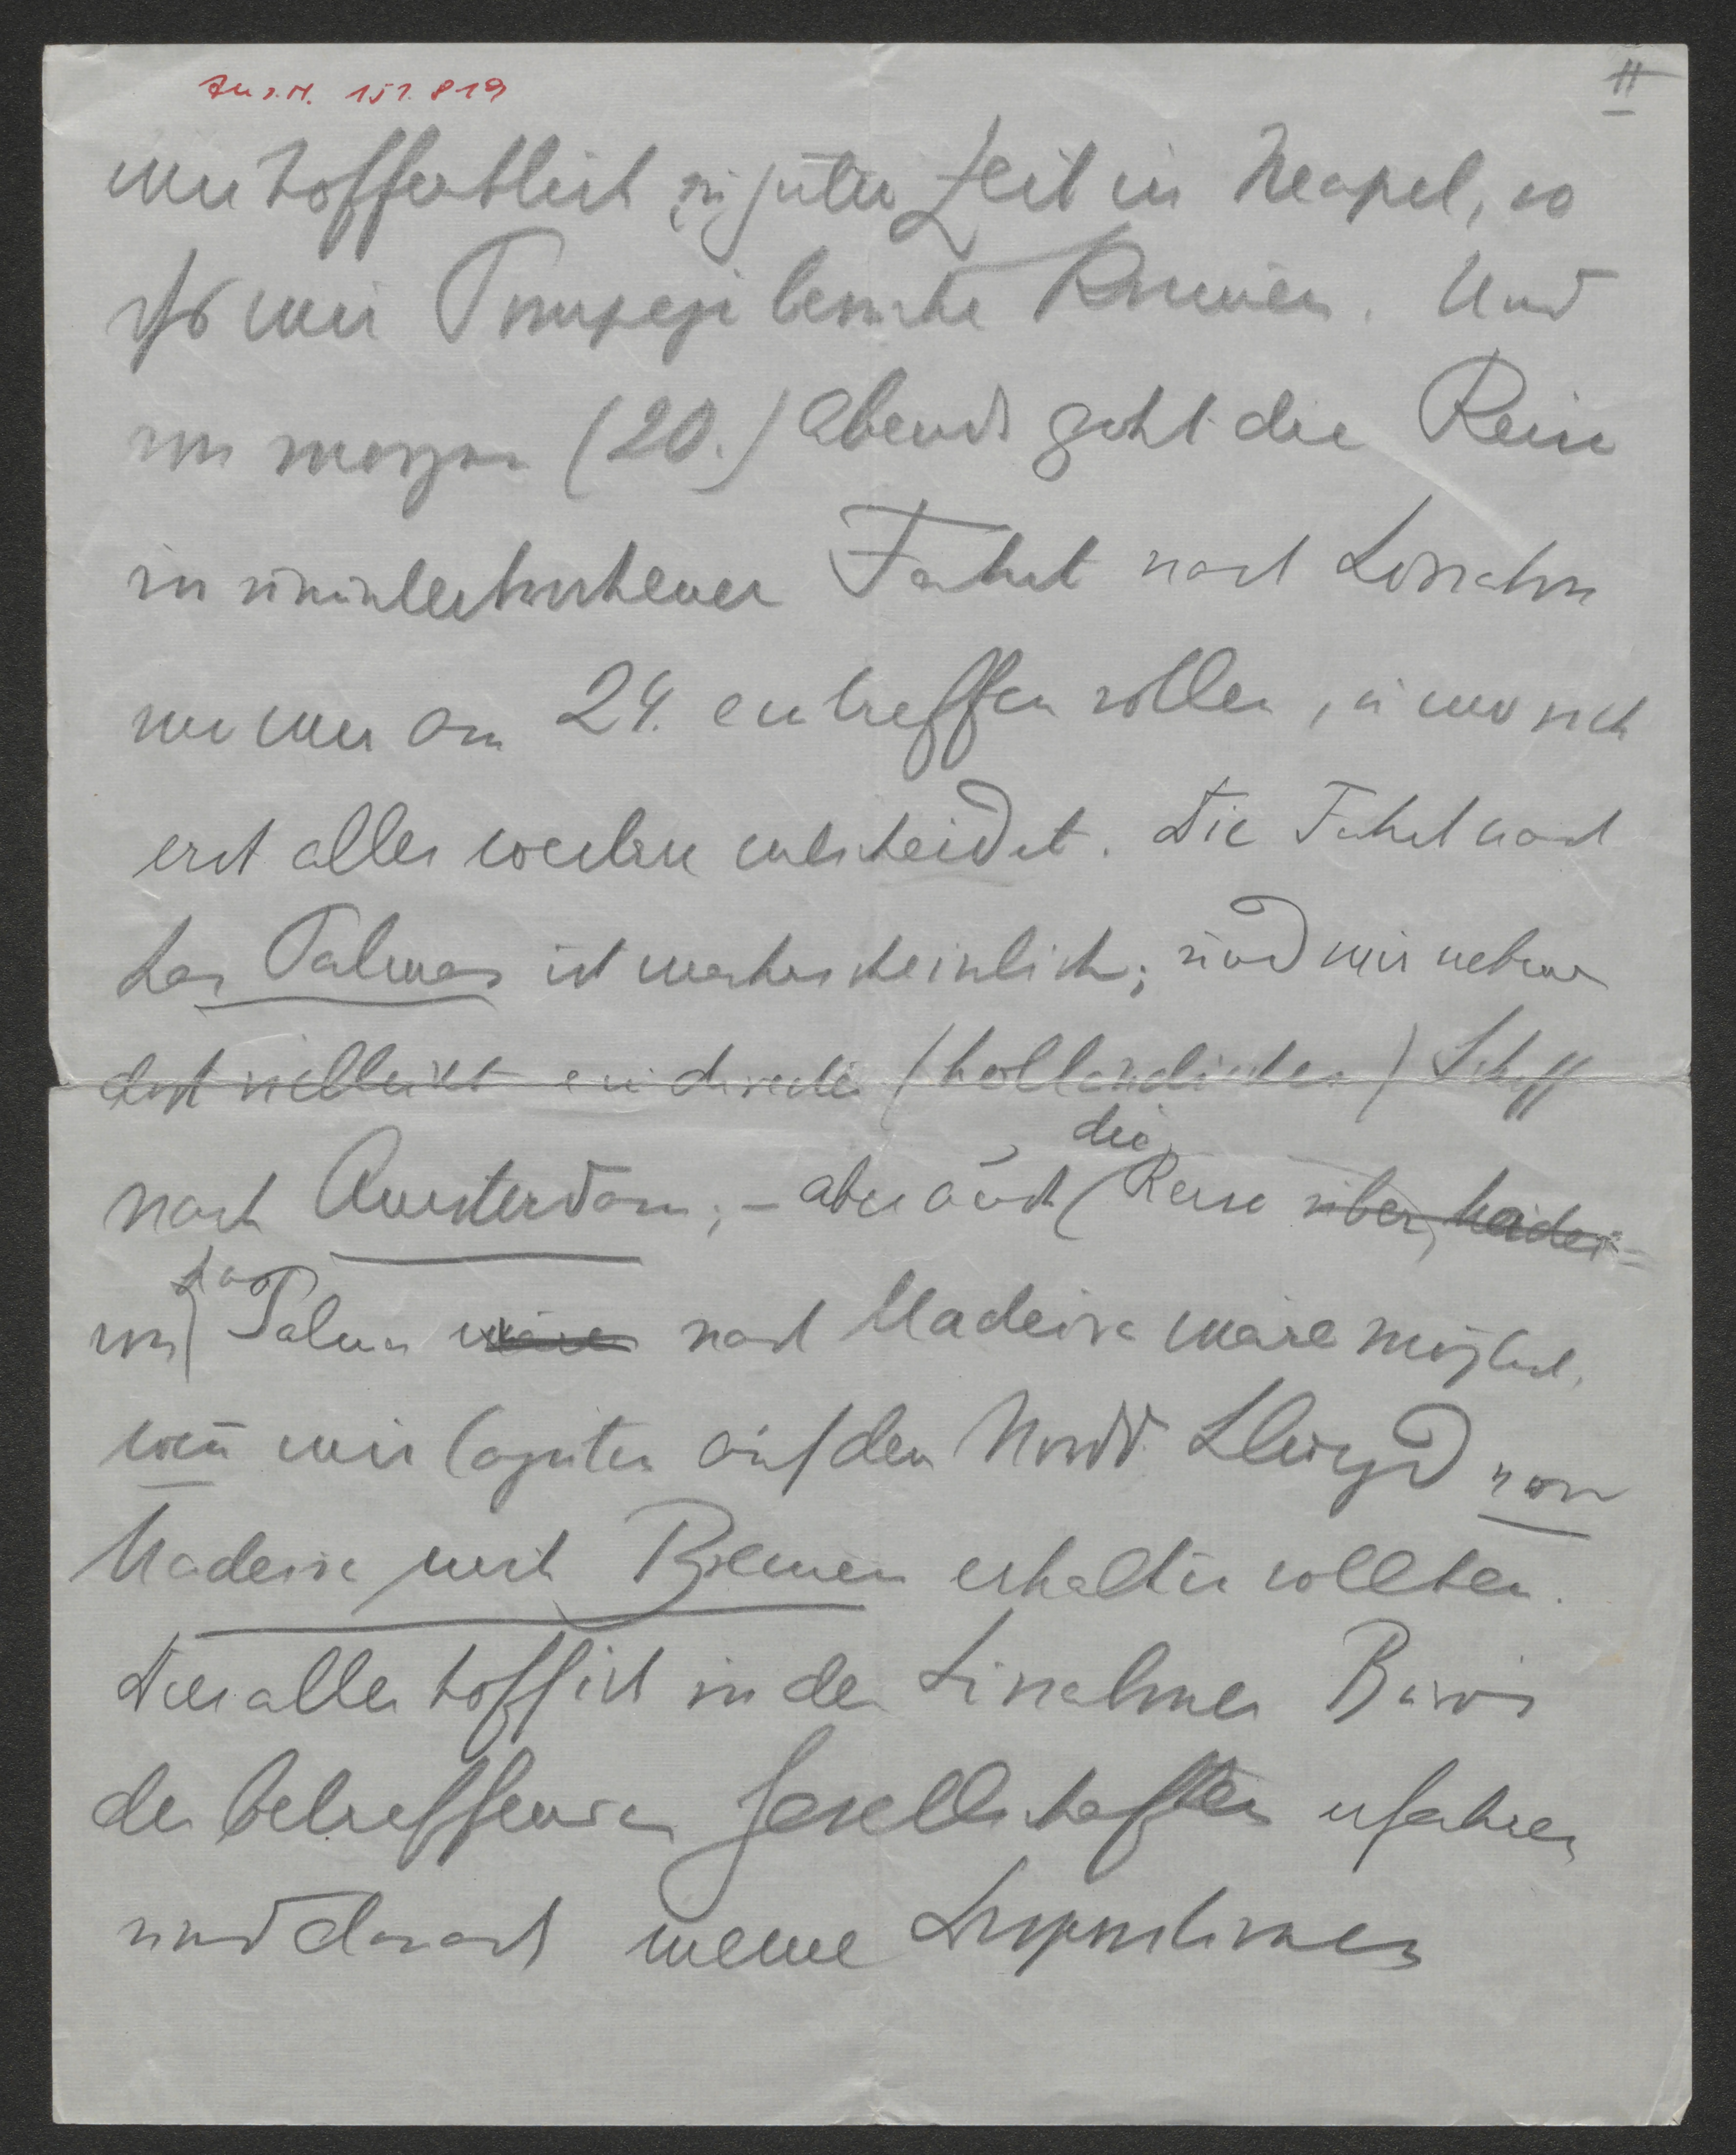 Zu I.N. 151.819
II
wir hoffentlich zu guter Zeit in Neapel, so
daß wir Pompeji besuchen können. Und
von morgen (20.) Abends geht die Reise
in ununterbrochener Fahrt nach Lissabon
wo wir am 24. eintreffen sollen, u wo sich
erst alles weitere entscheidet. Die Fahrt nach
Las Palmas ist wahrscheinlich; und wir nehmen
dort vielleicht ein directes (holländisches) Schiff
nach Amsterdam; – aber auch die Reise über
von Las Palmas wäre nach Madeira wäre möglich,
wen̄ wir Cajüten auf dem Nordd. Lloyd von
Madeira nach Bremen erhalten sollten.
Dies alles hoff ich in den Lissaboner Bureaus
der betreffenden Gesellschaften erfahren
und danach meine Dispositionen